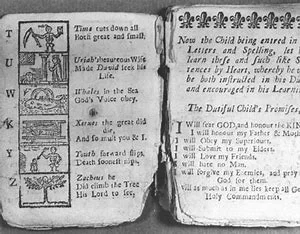 T
Time cuts down all
Both great and small.
U
Uriah's beauteous Wife
Made David seek his
Life.
W
Whales in the Sea
God's Voice obey.
X
Xerxes the great did
die,
And so must you & I.
Y
Youth forward slips
Death soonest nips.
Z
Zacheus he
Did climb the Tree
His Lord to see,
Now the Child being entred in
Letters and Spelling, let
learn these and such like S
tences by Heart, whereby he
be both instructed in his D
and encouraged in his Learni
The Dutiful Child's Promises,
I Will fear GOD, and honour the KIN
I will honour my Father & Moth
I will Obey my Superiours.
I will Submit to my Elders.
I will Love my Friends.
I will hate no Man.
I will forgive my Enemies, and pray
God for them.
I will as much as in me lies keep all Go
Holy Commandments.